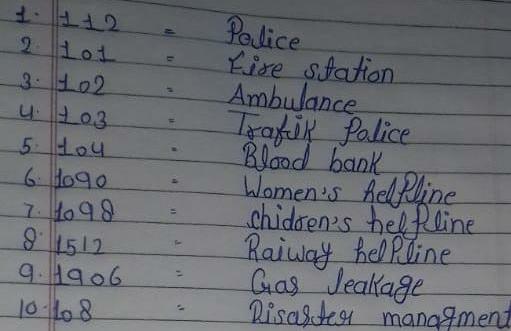 1. 112 = Police
2. 101 = Fire station
3. 102 = Ambulance
4. 103 = Trafik Police
5. 104 = Blood bank
6. 1090 = Women's helpline
7. 1098 = chidren's helpline
8. 1512 = Raiway helpline
9. 1906 = Gas leakage
10. 108 = Disaster managment